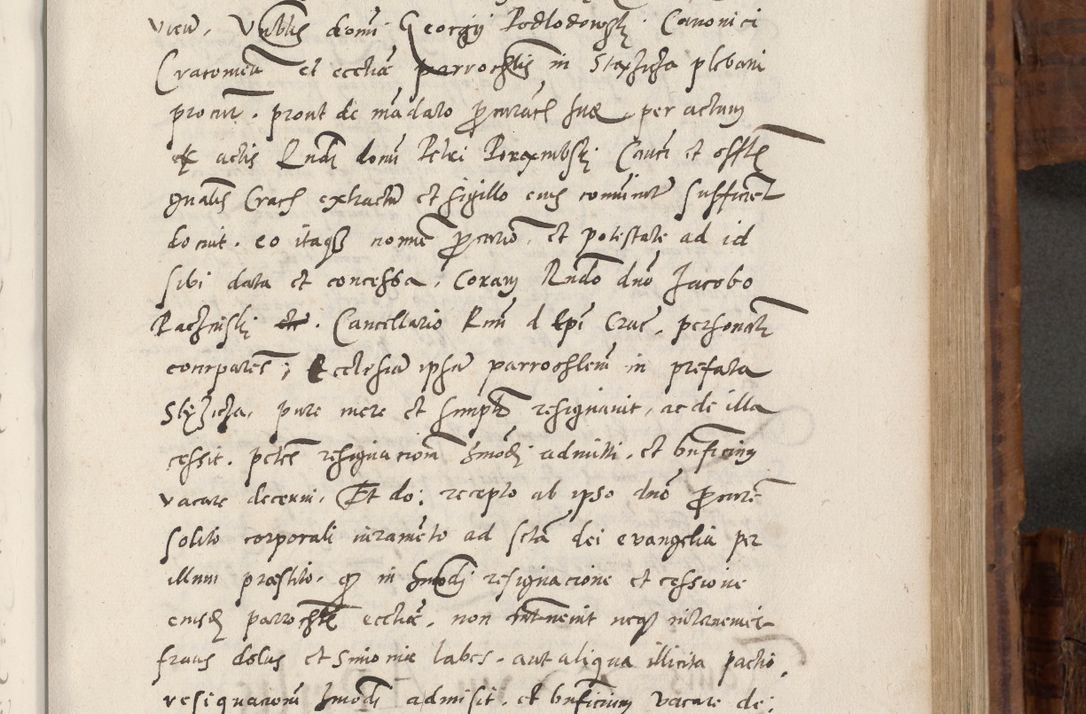 vicu, Vnblis domi Georgij Podlodowskj Canonici
Cracouien et eccliæ parrochlis in Stężicza plebani
procur. prout de mādato procurac̄ suæ per actum
ex actis Rndi domi Petri Porembskj Cauci et offlis
gnalis Crac̄ extractu et sigillo eius comunitu sufficien
docuit. eo itaq nomine procurio, et potestate ad id
sibi data et concessa, Coram Rndo dno Jacobo
Raczinskj Cancellario Rmi d Epi Crac, personalr
comparens, Ecclesiam ipsam parrochlem in præfata
Stęzicza, pure mere et simplr resignauit, ac de illa
cessit. petens resignacionem hmodj admitti, et bnficium
vacare decerni, Et do: recepto ab ipso dno procure
solito corporali iuramēto ad sctā dei euangelia per
illum præstito, q in hmodj resignacione et cessione
eiusd parrochlis eccliæ, non interuenit neq interueniet
fraus dolus et simoniæ labes, aut aliqua illicita pactio,
resignacionem hmodj admisit, et bnficium vacare de: